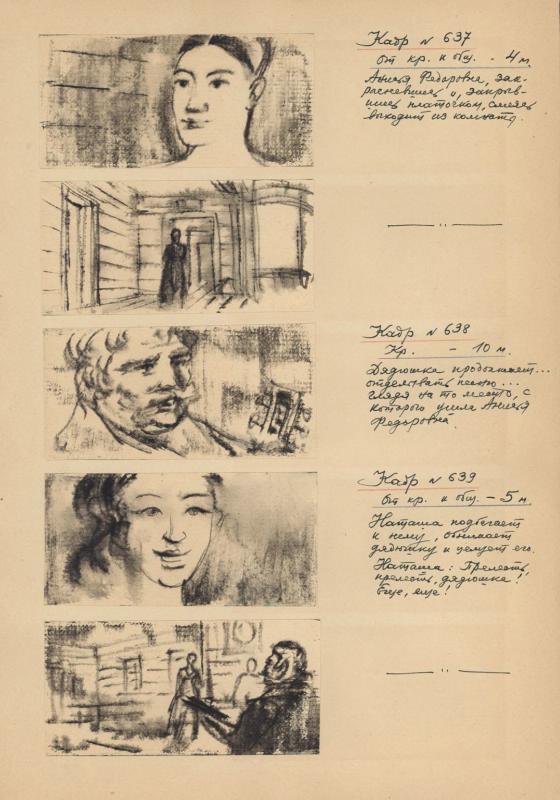 Кадр N 637
от кр. к общ. - 4 м.
Анисья Федоровна, зак-
расневшись и, закрыв-
шись платочком, смеясь
выходит из комнаты.
— " —
Кадр N 638
Кр. - 10 м.
Дядюшка продолжает...
отделывать песню...
глядя на то место, с
которого ушла Анисья
Федоровна.
Кадр N 639
от кр. к общ. - 5 м.
Наташа подбегает
к нему, обнимает
дядюшку и целует его.
Наташа: Прелесть,
прелесть, дядюшка!
Еще, еще!
— " —